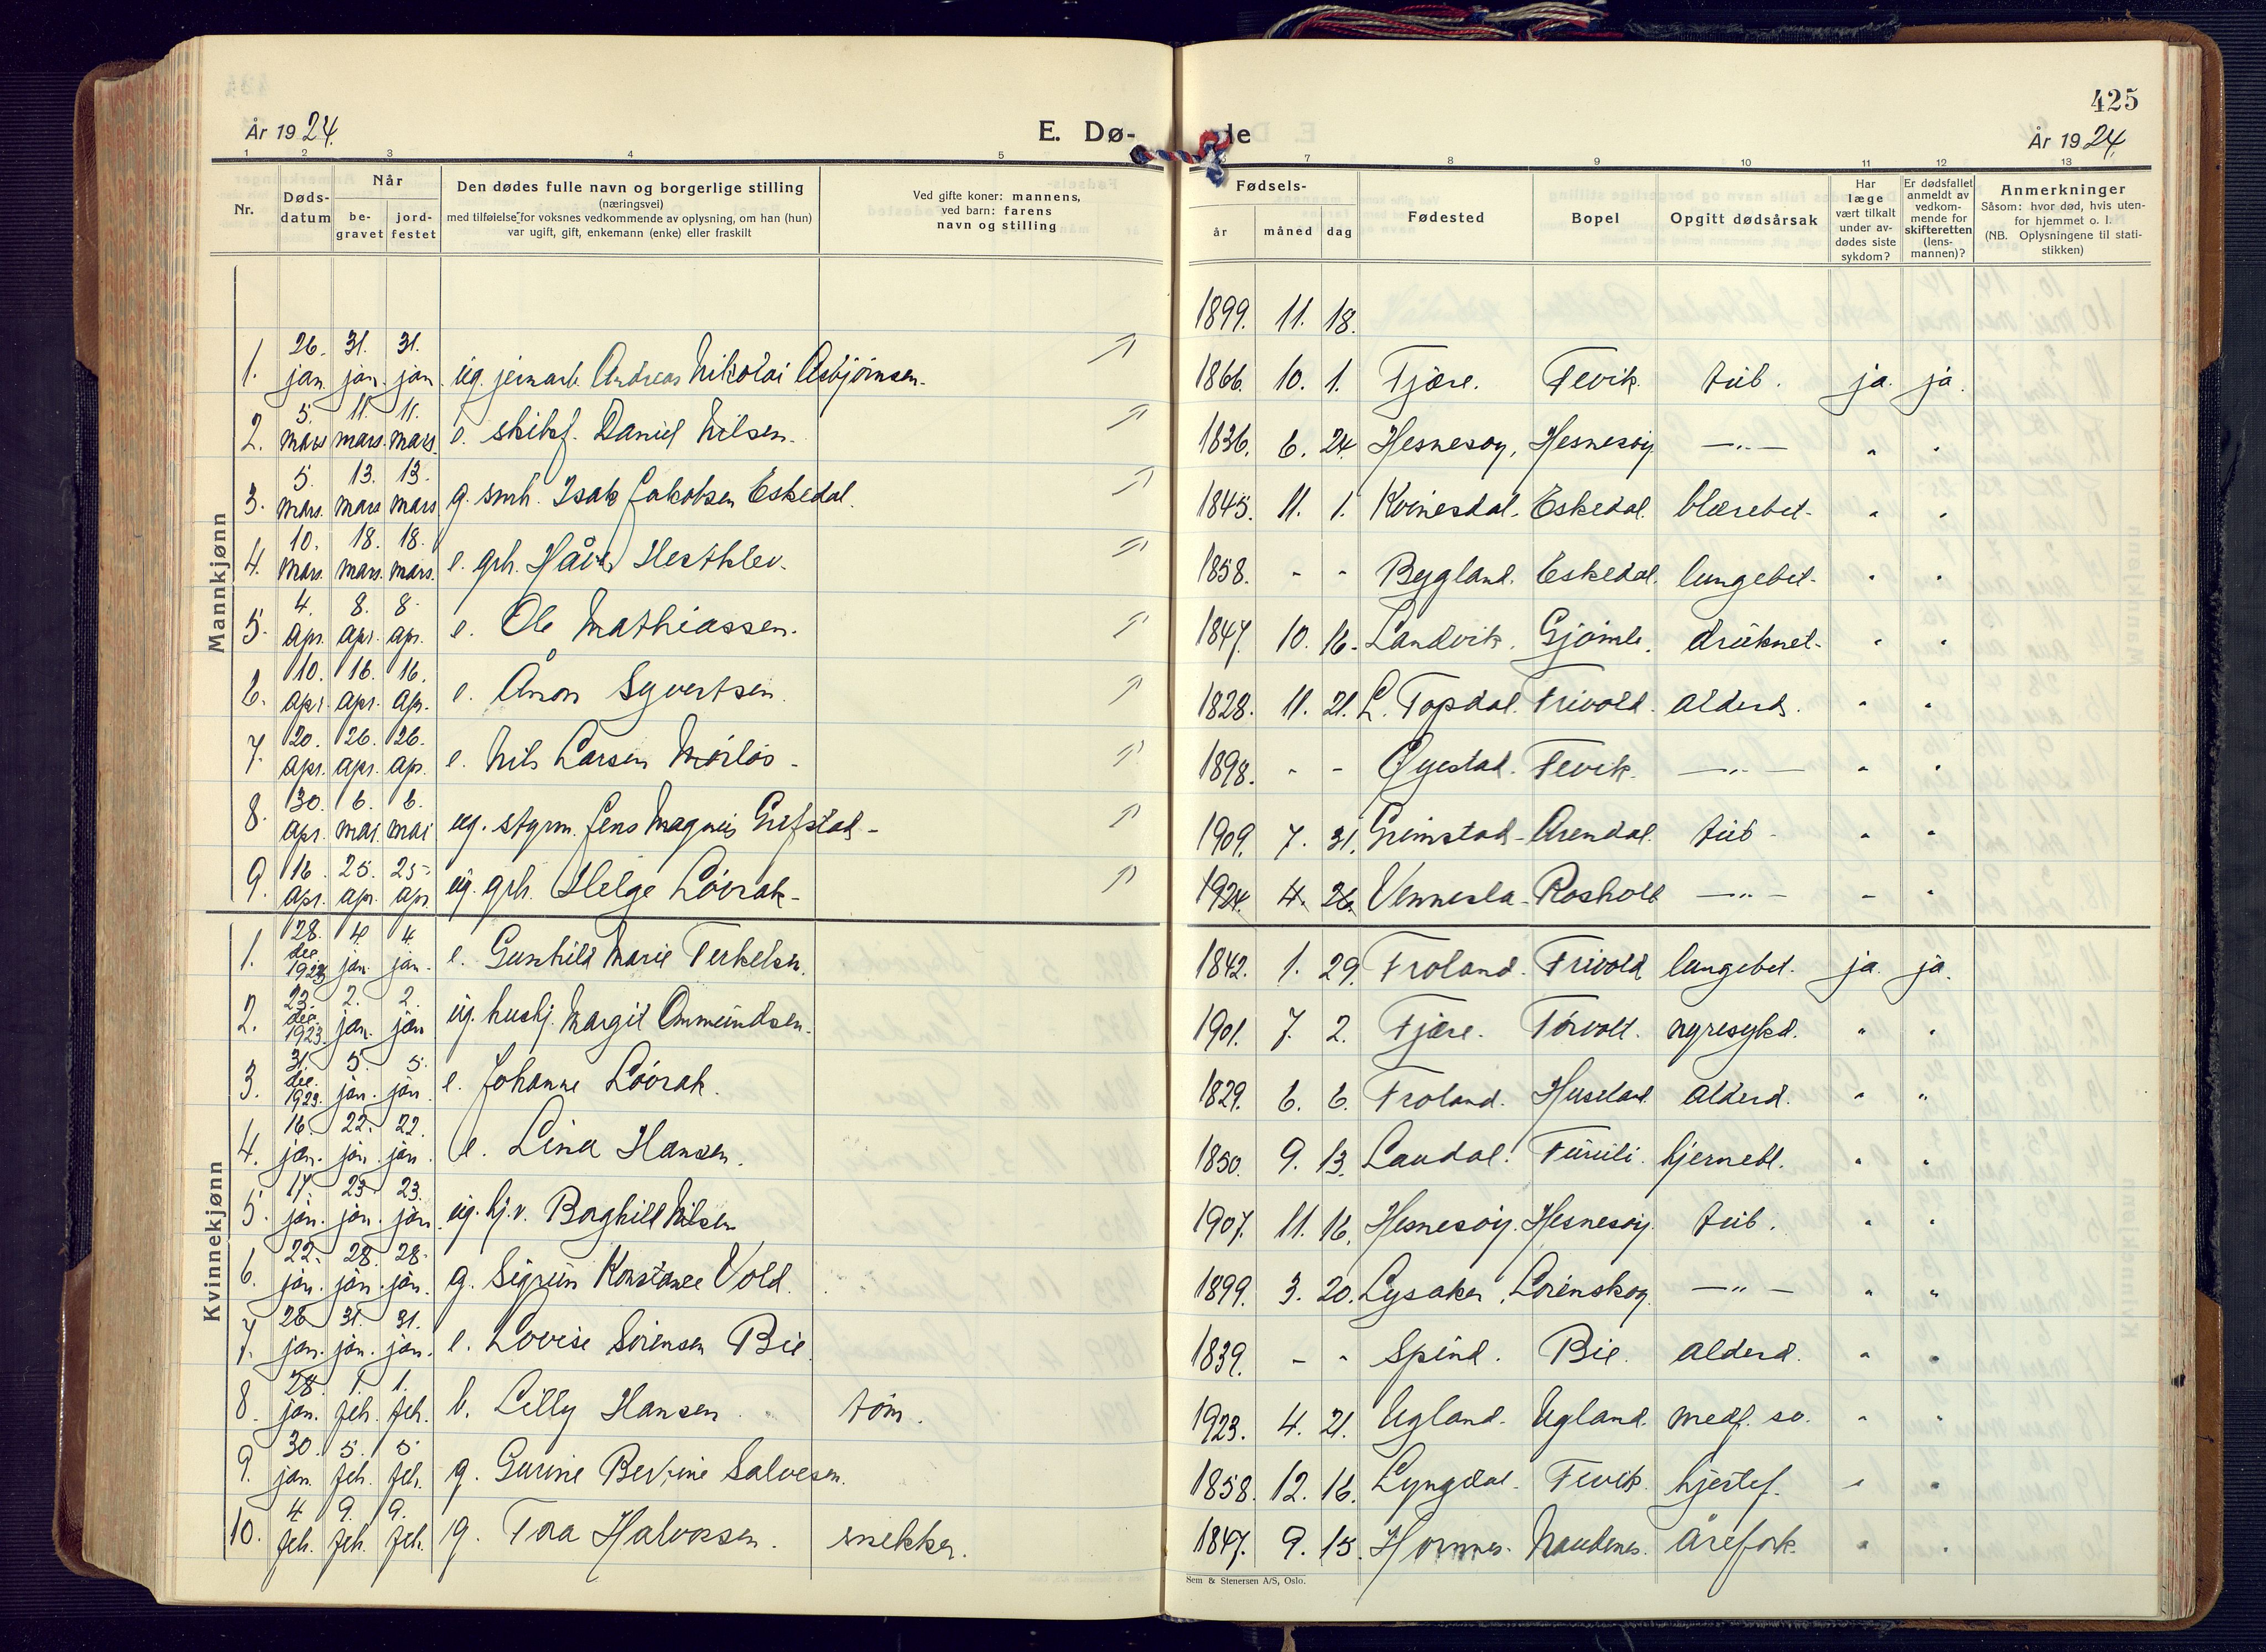 År 1924.
E. Dø-
de
425
År 1924.
1 2 3 4 5 7 8 9 10 11 12 13
Nr.
Døds-
datum
Når
be-
gravet
jord-
festet
Den dødes fulle navn og borgerlige stilling
(næringsvei)
med tilføielse for voksnes vedkommende av oplysning, om han (hun)
var ugift, gift, enkemann (enke) eller fraskilt
Ved gifte koner: mannens,
ved barn: farens
navn og stilling
Fødsels-
år måned dag
Fødested
Bopel
Opgitt dødsårsak
Har
læge
vært tilkalt
under av-
dødes siste
sykdom?
Er dødsfallet
anmeldt av
vedkom-
mende for
skifteretten
(lens-
mannen)?
Anmerkninger
Såsom: hvor død, hvis uten-
for hjemmet o. l.
(NB. Oplysningene til stati-
stikken)
Mannkjønn
1899. 11. 18.
1. 26. jan. 31. jan. 31. jan. ug. jernarb. Andreas Nikolai Asbjørnsen. 1866. 10. 1. Fjære. Fevik. tub. ja. ja.
2. 5. mars 11. mars. 11. mars. e. skibsf. Daniel Nilsen. 1836. 6. 24. Hesnesøy, Hesnesøy —"— " "
3. 5. mars. 13. mars 13. mars g. smh. Isak Jakobsen Eskedal. 1845. 11. 1. Kvinesdal. Eskedal. blærebet. " "
4. 10. mars. 18. mars. 18. mars. e. grh. Håvar Hestklev. 1858. - - Bygland. Eskedal. lungebet. " "
5. 4. apr. 8. apr. 8. apr. e. Ole Mathiassen. 1847. 10. 16. Landvik. Gjømle. druknet. " "
6. 10. apr. 16. apr. 16. apr. e. Ånon Syvertsen. 1828. 11. 21. L. Topdal. Frivold. alderd. " "
7. 20. apr. 26. apr. 26. apr. e. Nils Larsen Mørlås. 1898. - - Øyestad. Fevik. —"— " "
8. 30. apr. 6. mai 6. mai ug. styrm. Jens Magnus Grefstad. 1909. 7. 31. Grimstad. Arendal. tub. " "
9. 16. apr. 25. apr. 25. apr. ug. grh. Helge Løvrak. 1924. 4. 26. Vennesla. Rosholt —"— " "
Kvinnekjønn
1. 28. dec. 1923 4. jan. 4. jan. e. Gunhild Marie Terkelsen. 1842. 1. 29. Froland. Frivold lungebet. ja. ja.
2. 23. dec. 1923. 2. jan. 2. jan ug. hushj. Margit Ommundsen. 1901. 7. 2. Fjære. Tørvolt. nyresykd. " "
3. 31. dec. 1923. 5. jan. 5. jan e. Johanne Løvrak. 1829. 6. 6. Froland. alderd. " "
4. 16. jan. 22. jan. 22. jan. e. Lina Hansen. 1850. 9. 13. Laudal. Furuli. hjernebl. " "
5. 17. jan. 23. jan. 23. jan. ug. hj.v. Borghild Nilsen 1907. 11. 16. Hesnesøy. Hesnesøy. tub. " "
6. 22. jan. 28. jan. 28. jan. g. Sigrun Konstanse Vold. 1899. 3. 20. Lysaker. Lørenskog. —"— " "
7. 26 jan. 31. jan. 31. jan. e. Lovise Sørensen Bie. 1839. - - Spind. Bie. alderd. " "
8. 28. jan. 1. feb. 1. feb. b. Lilly Hansen. tøm. 1923. 4. 21. Ugland. Ugland. medf. sv. " "
9. 30. jan. 5. feb. 5. feb. g. Gurine Bertine Salvesen. 1858. 12. 16. Lyngdal. Fevik. hjertef. " "
10. 4 feb. 9. feb. 9. feb. g. Tora Halvorsen. snekker. 1847. 9. 15. Hornnes. Naudenes. årefork. " "
Sem & Stenersen A/S, Oslo.